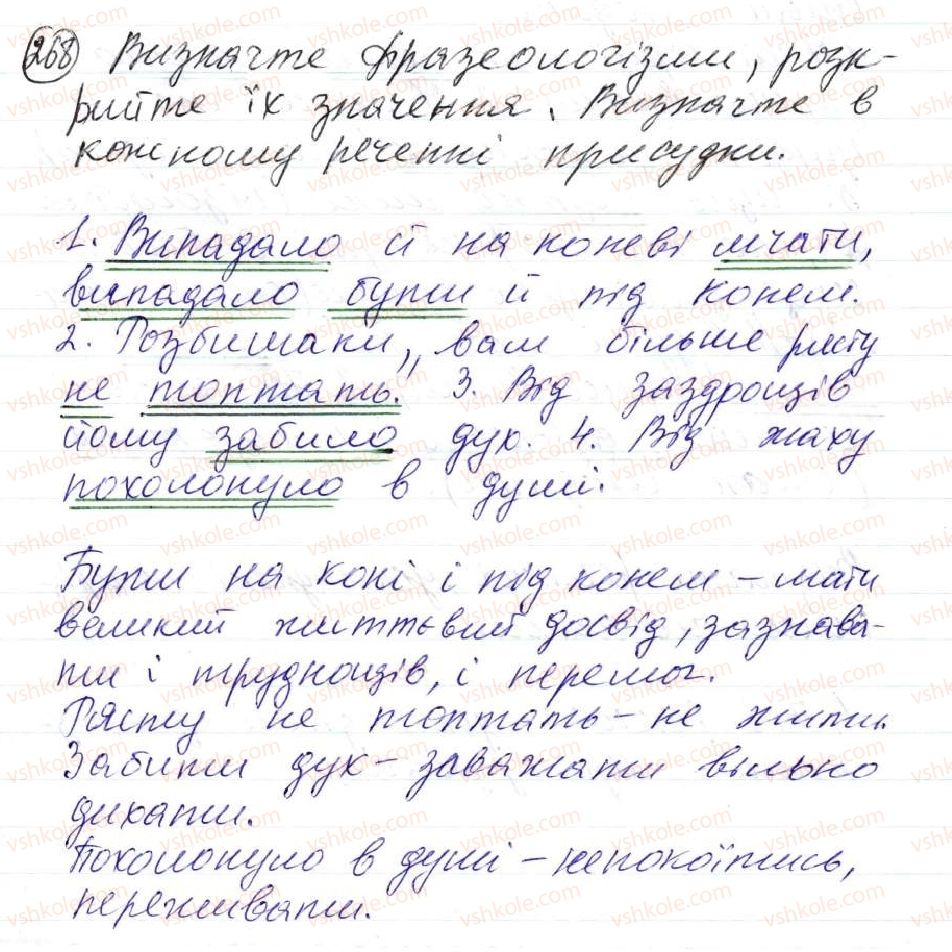 268 Визначте фразеологізми, розк-
рийте їх значення. Визначте в
кожному реченні присудки.
1. Випадало й на коневі мчати,
випадало бути й під конем.
2. Розбишаки, вам більше рясту
не топтать. 3. Від заздрощів
йому забило дух. 4. Від жаху
похолонуло в душі.
Бути на коні і під конем – мати
великий життєвий досвід, зазнава-
ти і труднощів, і перемог.
Рясту не топтать – не жити.
Забити дух – заважати вільно
дихати.
Похолонуло в душі – непокоїтись,
переживати.